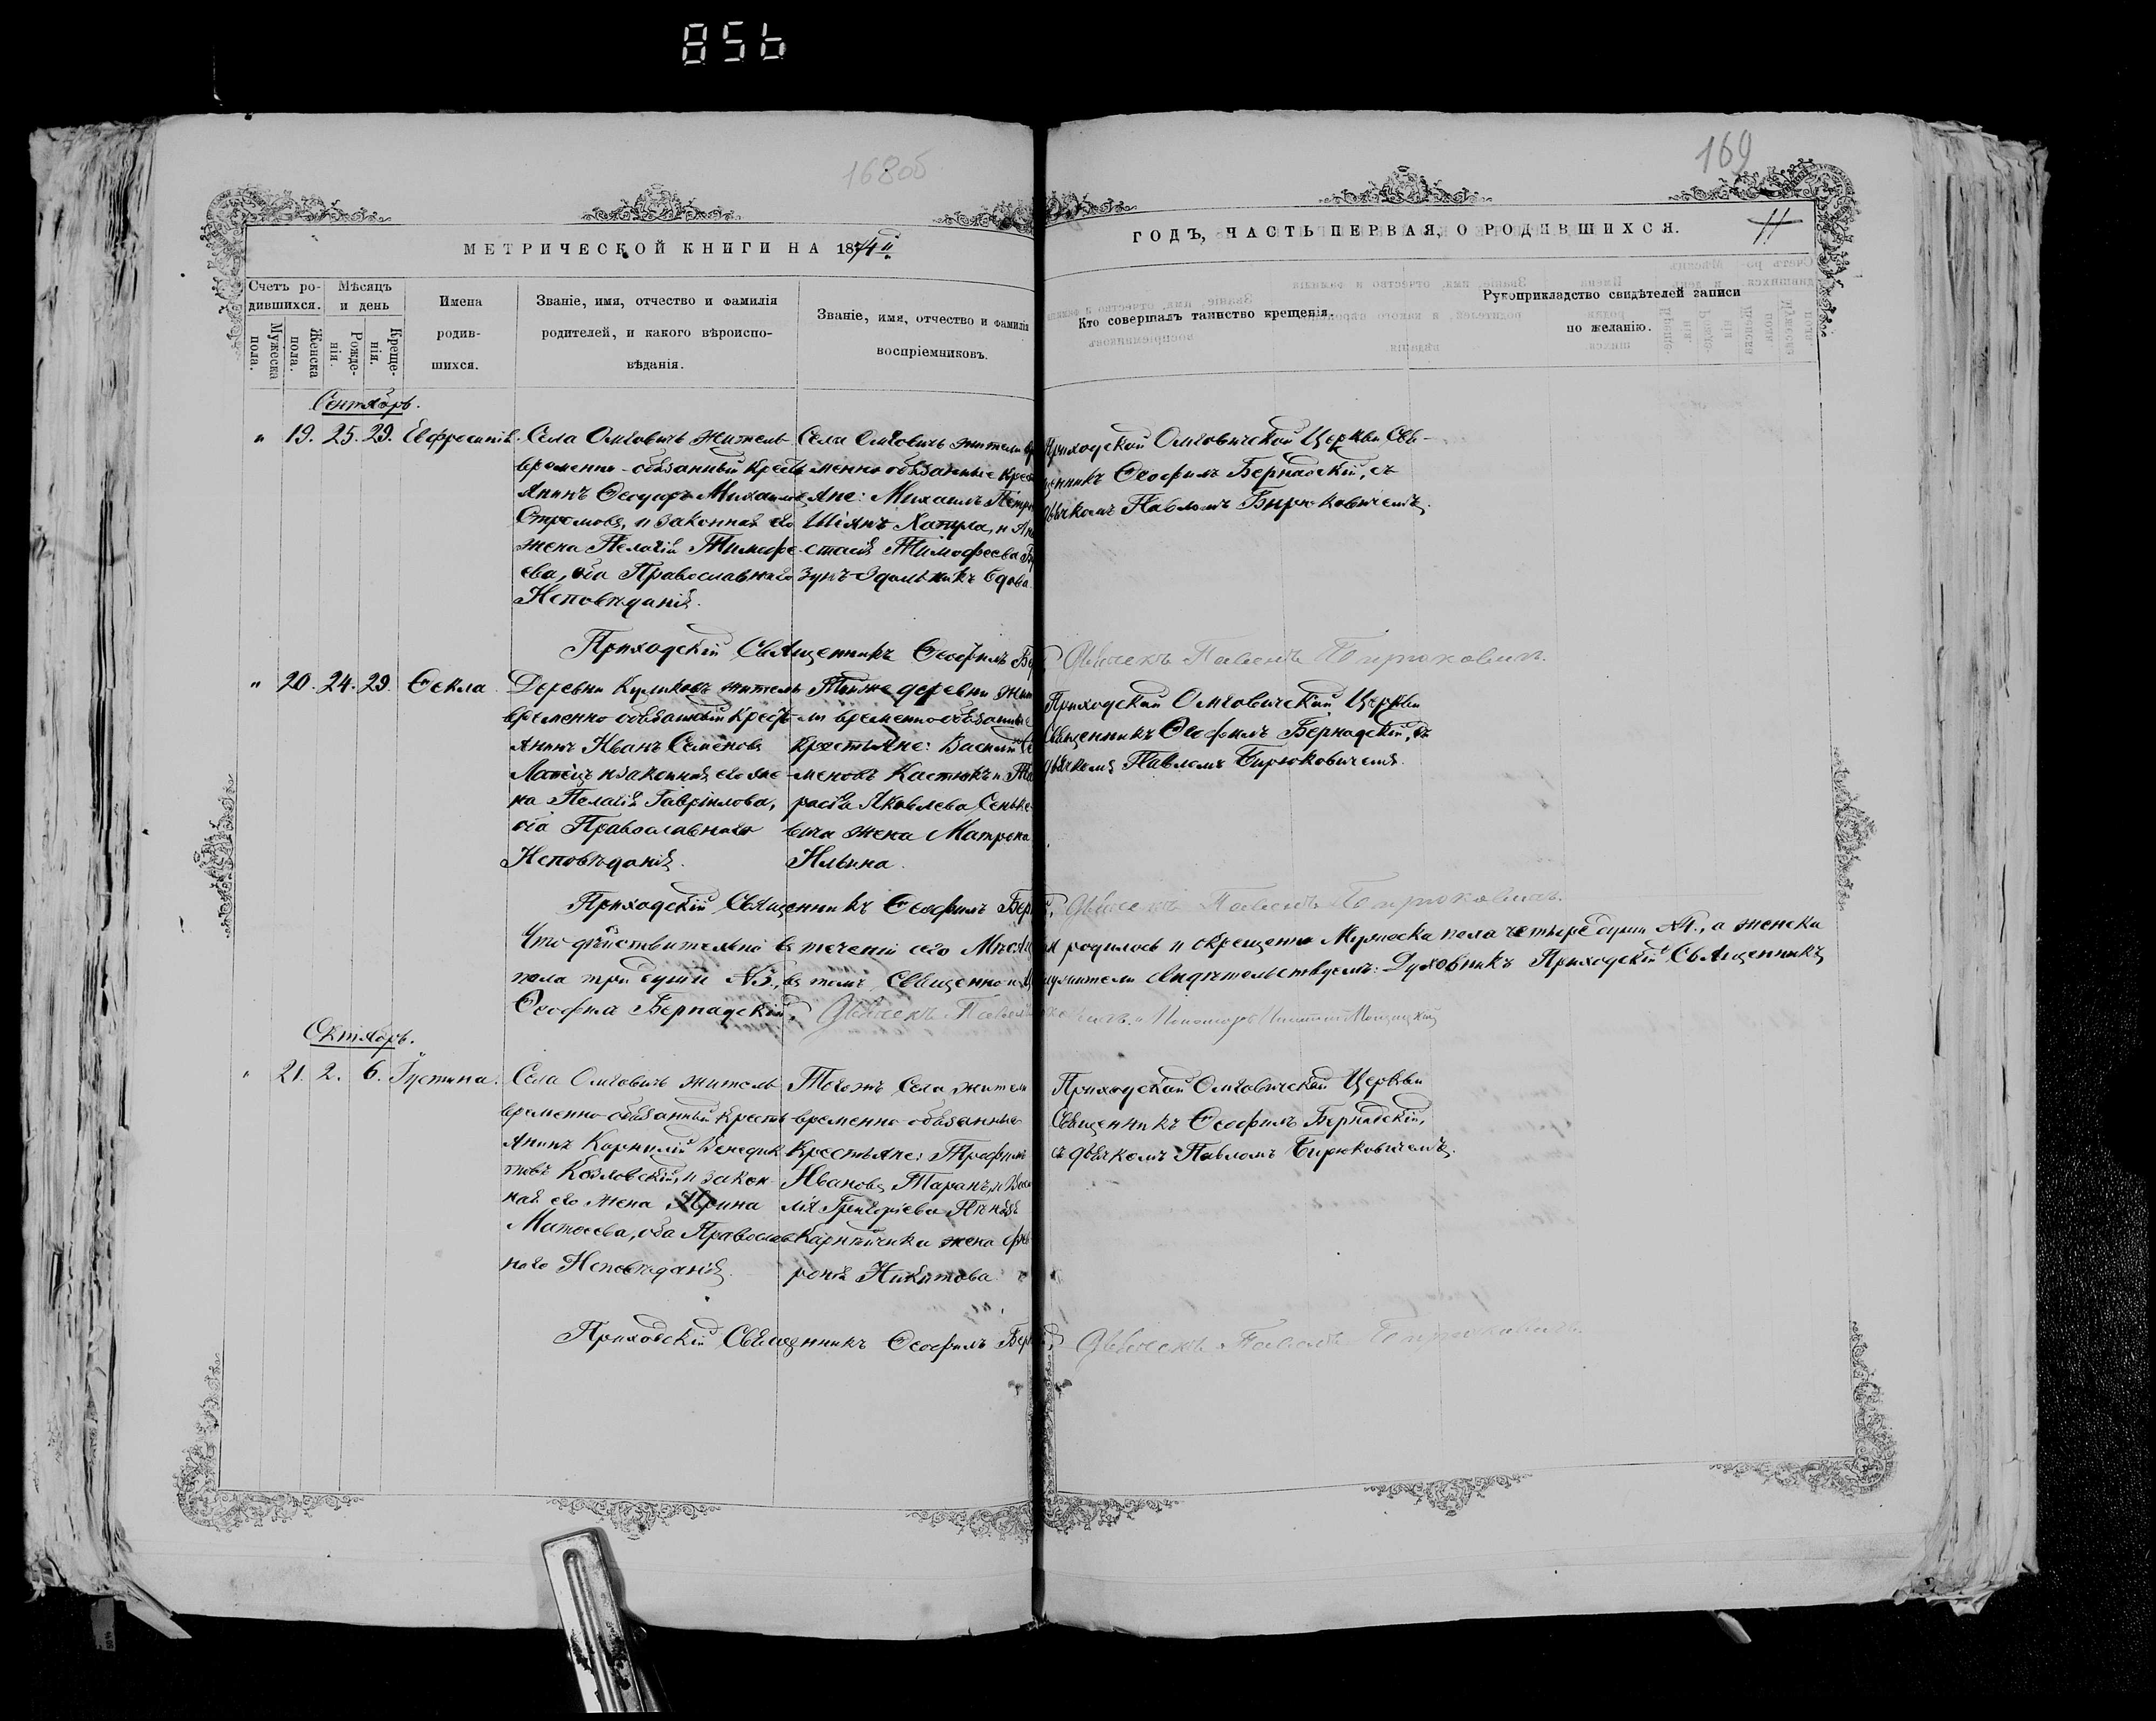 856
168об
169
МЕТРИЧЕСКОЙ КНИГИ НА 1874й
ГОДЪ, ЧАСТЬ ПЕРВАЯ, О РОДИВШИХСЯ.
11
Счетъ родившихся.
Мужеска пола.
Женска пола.
Мѣсяцъ и день
Рожденія.
Крещенія.
Имена родившихся.
Званіе, имя, отчество и фамилія родителей, и какого вѣроисповѣданія.
Званіе, имя, отчество и фамилія воспріемниковъ.
Кто совершалъ таинство крещенія.
Рукоприкладство свидѣтелей записи по желанію.
Сентябрь.
" 19. 25. 29. Евфросинія
Села Омговичъ житель
временно-обязанный кресть
янинъ
и законная его
жена Пелагія Тимофе
ева, оба Православнаго
Исповѣданія.
Села Омговичъ жители вре
менно обязанные крес
яне: Михаилъ Петро
Тимофеева
Приходской Омговичской Церкви Свя-
щенникъ Ѳеофилъ Бернадскій, съ
дьячкомъ Павломъ Бирюковичемъ.
Приходскій Священникъ Ѳеофилъ Бер
Дьячекъ Павелъ Бирюковичъ.
" 20. 24. 29. Ѳекла
Деревни Куликовъ житель
временно обязанный Кресть
янинъ Иванъ Семеновъ
и законная его же
на Пелагія Гаврілова,
оба Православнаго
Исповѣданія.
Тойже деревни жит
ли временно обязанные
крестьяне: Василій Се
меновъ Костюкъ и Та
расія Яковлева Сеньке
вича жена Матрона
Ильина.
Приходской Омговичской Церкви
Священникъ Ѳеофилъ Бернадскій, съ
дьячкомъ Павломъ Бирюковичемъ.
Приходскій Священникъ Ѳеофилъ Бер
Дьячекъ Павелъ Бирюковичъ.
Что дѣйствительно въ теченіи сего Мѣсяца родилось и окрещенно Мужеска пола четыре души №4., а женска
пола три души №3., въ томъ Священно и Ц свидѣтельствуемъ: Духовникъ Приходскій Священникъ
Ѳеофилъ Бернадскій, Дьячекъ Павелъ Пономарь
Октябрь.
" 21. 2. 6. Іустина.
Села Омговичъ житель
временно-обязанный кресть
янинъ Корнилій Венедик
товъ Козловскій, и закон
ная его жена Ирина
Матѳеева, оба Православ
наго Исповѣданія.
Тогожъ Села жители
временно обязанные
Крестьяне: Трофимъ
Ивановъ Таранъ, и
Григоріева
жена
Никитова.
Приходской Омговичской Церкви
Священникъ Ѳеофилъ Бернадскій,
съ дьячкомъ Павломъ Бирюковичемъ.
Приходскій Священникъ Ѳеофилъ Бер
Дьячекъ Павелъ Бирюковичъ.